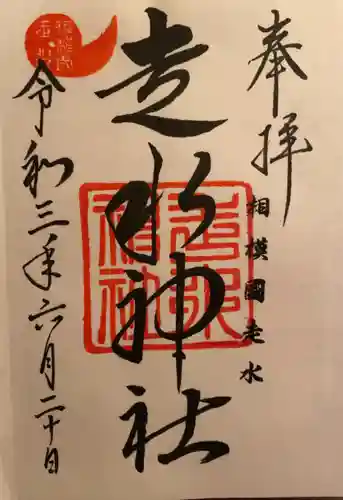 奉拝
相模國走水
走水神社
令和三年六月二十日